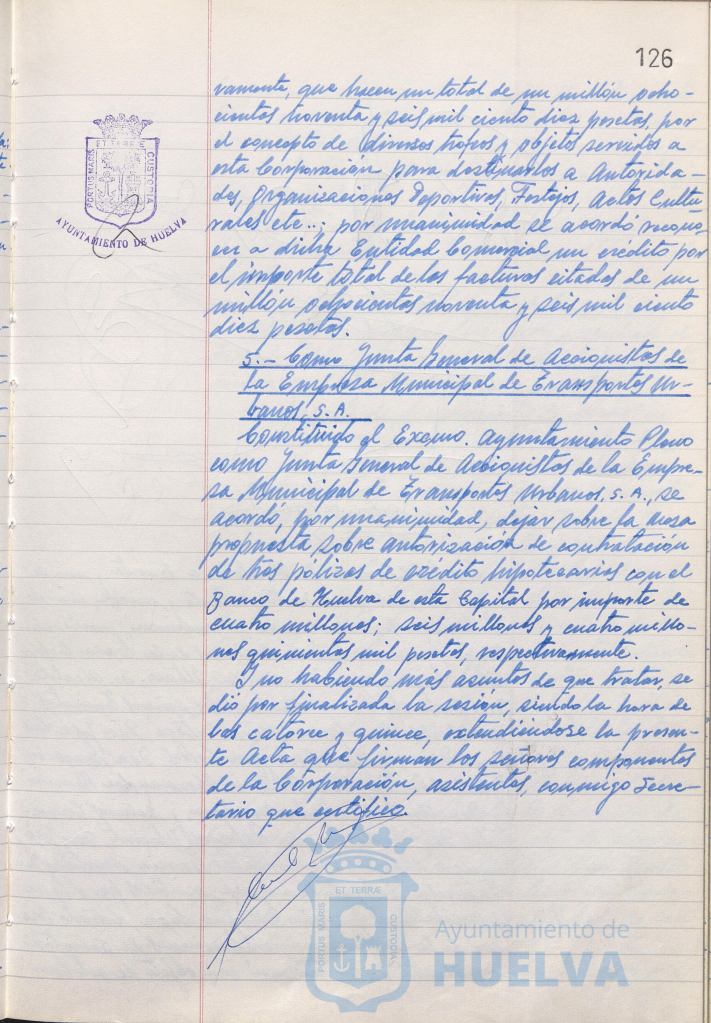 126
vamente, que hacen un total de un millón ocho-
cientas noventa y seis mil ciento diez pesetas, por
el concepto de diversos trofeos y objetos servidos a
esta Corporación para destinarlos a Autorida-
des, Organizaciones Deportivas, Festejos, Actos Cultu-
rales etc..; por unanimidad se acordó recono-
cer a dicha Entidad Comercial un crédito por
el importe total de las facturas citadas de un
millón ochocientas noventa y seis mil ciento
diez pesetas.
5.- Como Junta General de Accionistas de
la Empresa Municipal de Transportes Ur-
banos, S.A.
Constituido el Excmo. Ayuntamiento Pleno
como Junta General de Accionistas de la Empre-
sa Municipal de Transportes Urbanos, S.A., se
acordó, por unanimidad, dejar sobre la mesa
propuesta sobre autorización de contratación
de tres pólizas de crédito hipotecarios con el
Banco de Huelva de esta Capital por importe de
cuatro millones; seis millones y cuatro millo-
nes quinientas mil pesetas, respectivamente.
Y no habiendo más asuntos de que tratar, se
dió por finalizada la sesión, siendo la hora de
las catorce y quince, extendiéndose la presen-
te Acta que firman los señores componentes
de la Corporación, asistentes, conmigo Secre-
tario que certifico.
ET TERRÆ
PORTUS MARIS
CUSTODIA
AYUNTAMIENTO DE HUELVA
ET TERRÆ
PORTUS MARIS
CUSTODIA
Ayuntamiento de
HUELVA